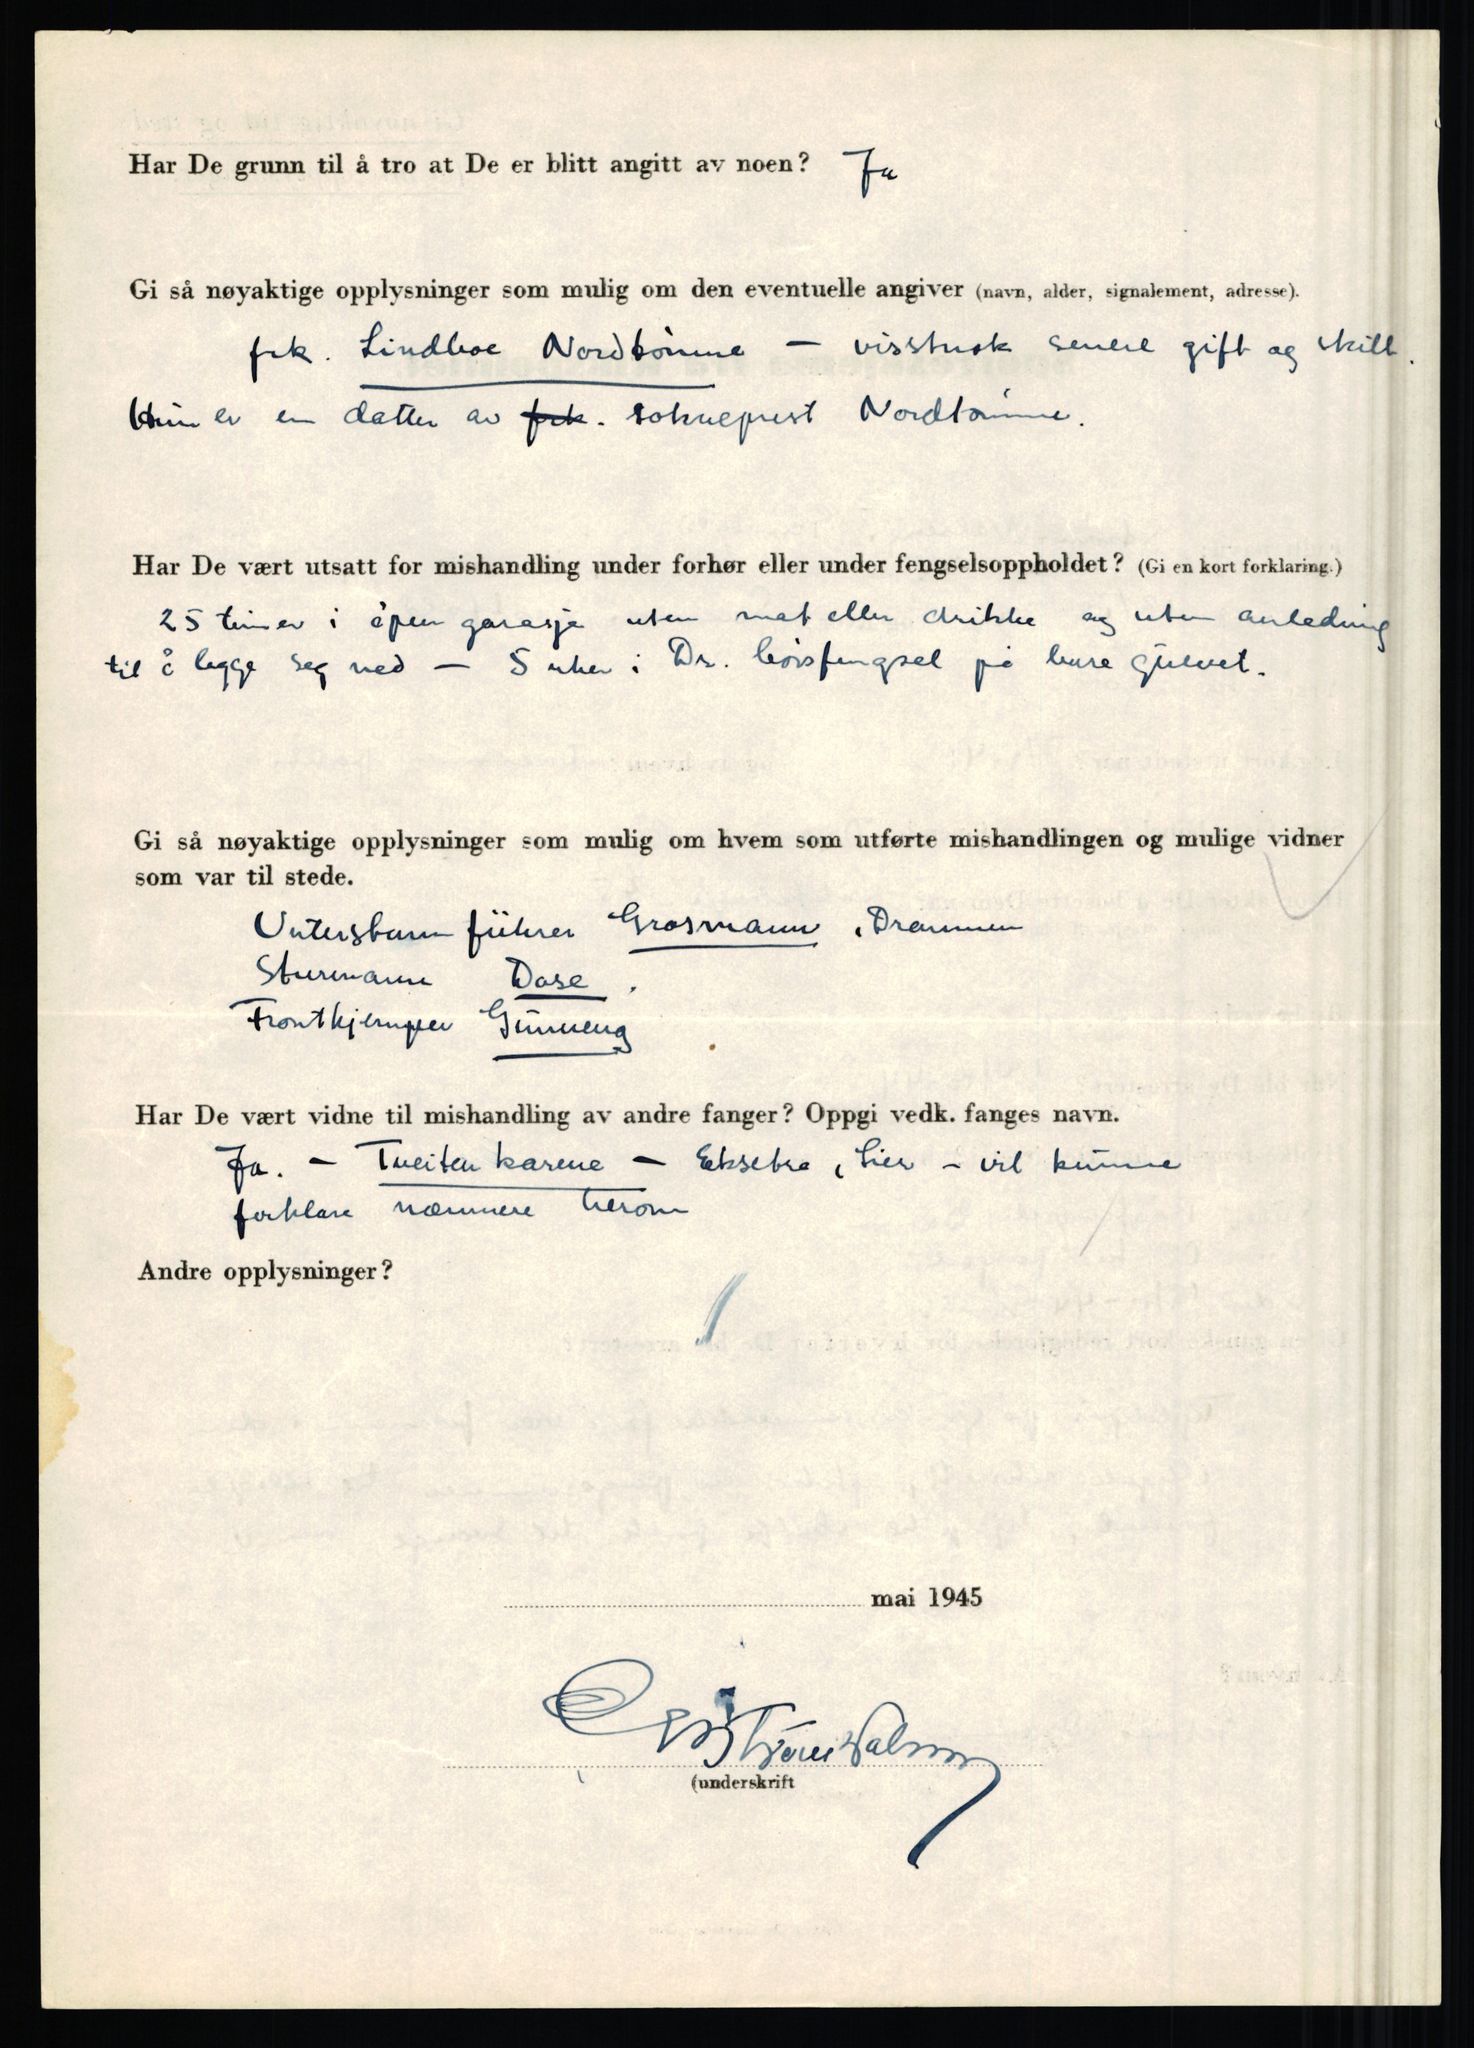 Har De grunn til å tro at De er blitt angitt av noen? Ja
Gi så nøyaktige opplysninger som mulig om den eventuelle angiver (navn, alder, signalement, adresse).
frk. Lindboe Nordtømme – visstnok senere gift og skilt.
Hun er en datter av frk. sokneprest Nordtømme.
Har De vært utsatt for mishandling under forhør eller under fengselsoppholdet? (Gi en kort forklaring.)
25 timer i åpen garasje uten mat eller drikke og uten anledning
til å legge seg ned – 5 uker i Dr. børsfengsel på bare gulvet.
Gi så nøyaktige opplysninger som mulig om hvem som utførte mishandlingen og mulige vidner
som var til stede.
Untersturmführer Grosmann, Drammen
Sturmann Dose.
Frontkjemper Gunneng
Har De vært vidne til mishandling av andre fanger? Oppgi vedk. fanges navn.
Ja. – Tveitenkarene – Eksetra, Lier – vil kunne
forklare nærmere herom
Andre opplysninger?
mai 1945
(underskrift